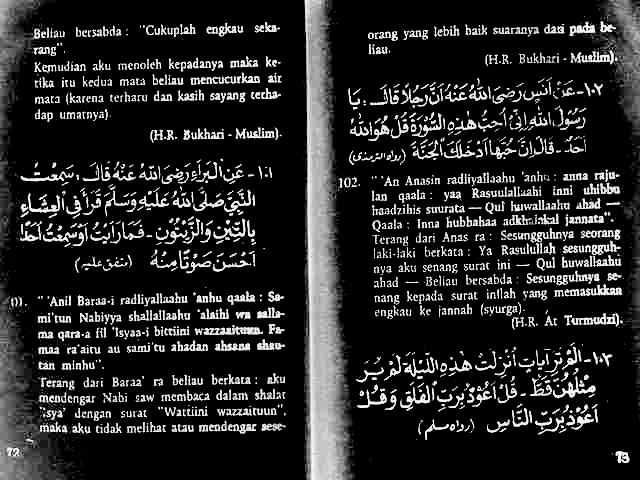 Beliau bersabda : "Cukuplah engkau seka-
rang".
Kemudian aku menoleh kepadanya maka ke-
tika itu kedua mata beliau mencucurkan air
mata (karena terharu dan kasih sayang terha-
dap umatnya)
(H.R. Bukhari - Muslim).
١٠١- عَنِ الْبَرَاءِ رَضِيَ اللّٰهُ عَنْهُ قَالَ : سَمِعْتُ
النَّبِيَّ صَلَّى اللّٰهُ عَلَيْهِ وَسَلَّمَ قَرَأَ فِي الْعِشَاءِ
بِالتِّيْنِ وَالزَّيْتُوْنِ - فَمَا رَأَيْتُ اَوْسَمِعْتُ اَحَدًا
اَحْسَنَ صَوْتًا مِنْهُ (متفق عليه)
01. "'Anil Baraa-i radliyallaahu 'anhu qaala : Sa-
mi'tun Nabiyya shallallaahu 'alaihi wa salla-
ma qara-a fil 'Isyaa-i bittiini wazzaituun. Fa-
maa ra'aitu au sami'tu ahadan ahsana shau-
tan minhu".
Terang dari Baraa' ra beliau berkata : aku
mendengar Nabi saw membaca dalam shalat
'isya' dengan surat "Wattiini wazzaituun".
maka aku tidak melihat atau mendengar sese-
72
orang yang lebih baik suaranya dari pada be-
liau.
(H.R. Bukhari - Muslim).
١٠٢- عَنْ اَنَسٍ رَضِيَ اللّٰهُ عَنْهُ اَنَّ رَجُلًا قَالَ : يَا
رَسُوْلَ اللّٰهِ اِنِّيْ اُحِبُّ هٰذِهِ السُّوْرَةَ قُلْ هُوَ اللّٰهُ
اَحَدٌ - قَالَ اِنَّ حُبَّهَا اَدْخَلَكَ الْجَنَّةَ (رواه الترمذى)
102. "'An Anasin radliyallaahu 'anhu : anna raju-
lan qaala : yaa Rasuulallaahi inni uhibbu
haadzihis suurata — Qul huwallaahu ahad —
Qaala : Inna hubbahaa adkhalakal jannata".
Terang dari Anas ra : Sesungguhnya seorang
laki-laki berkata : Ya Rasulullah sesungguh-
nya aku senang surat ini — Qul huwallaahu
ahad — Beliau bersabda : Sesungguhnya se-
nang kepada surat inilah yang memasukkan
engkau ke jannah (syurga).
(H.R. At Turmudzi).
١٠٣- اَلَمْ تَرَ اٰيَاتٍ اُنْزِلَتْ هٰذِهِ اللَّيْلَةَ لَمْ يُرَ
مِثْلُهُنَّ قَطُّ - قُلْ اَعُوْذُ بِرَبِّ الْفَلَقِ وَقُلْ
اَعُوْذُ بِرَبِّ النَّاسِ (رواه مسلم)
73